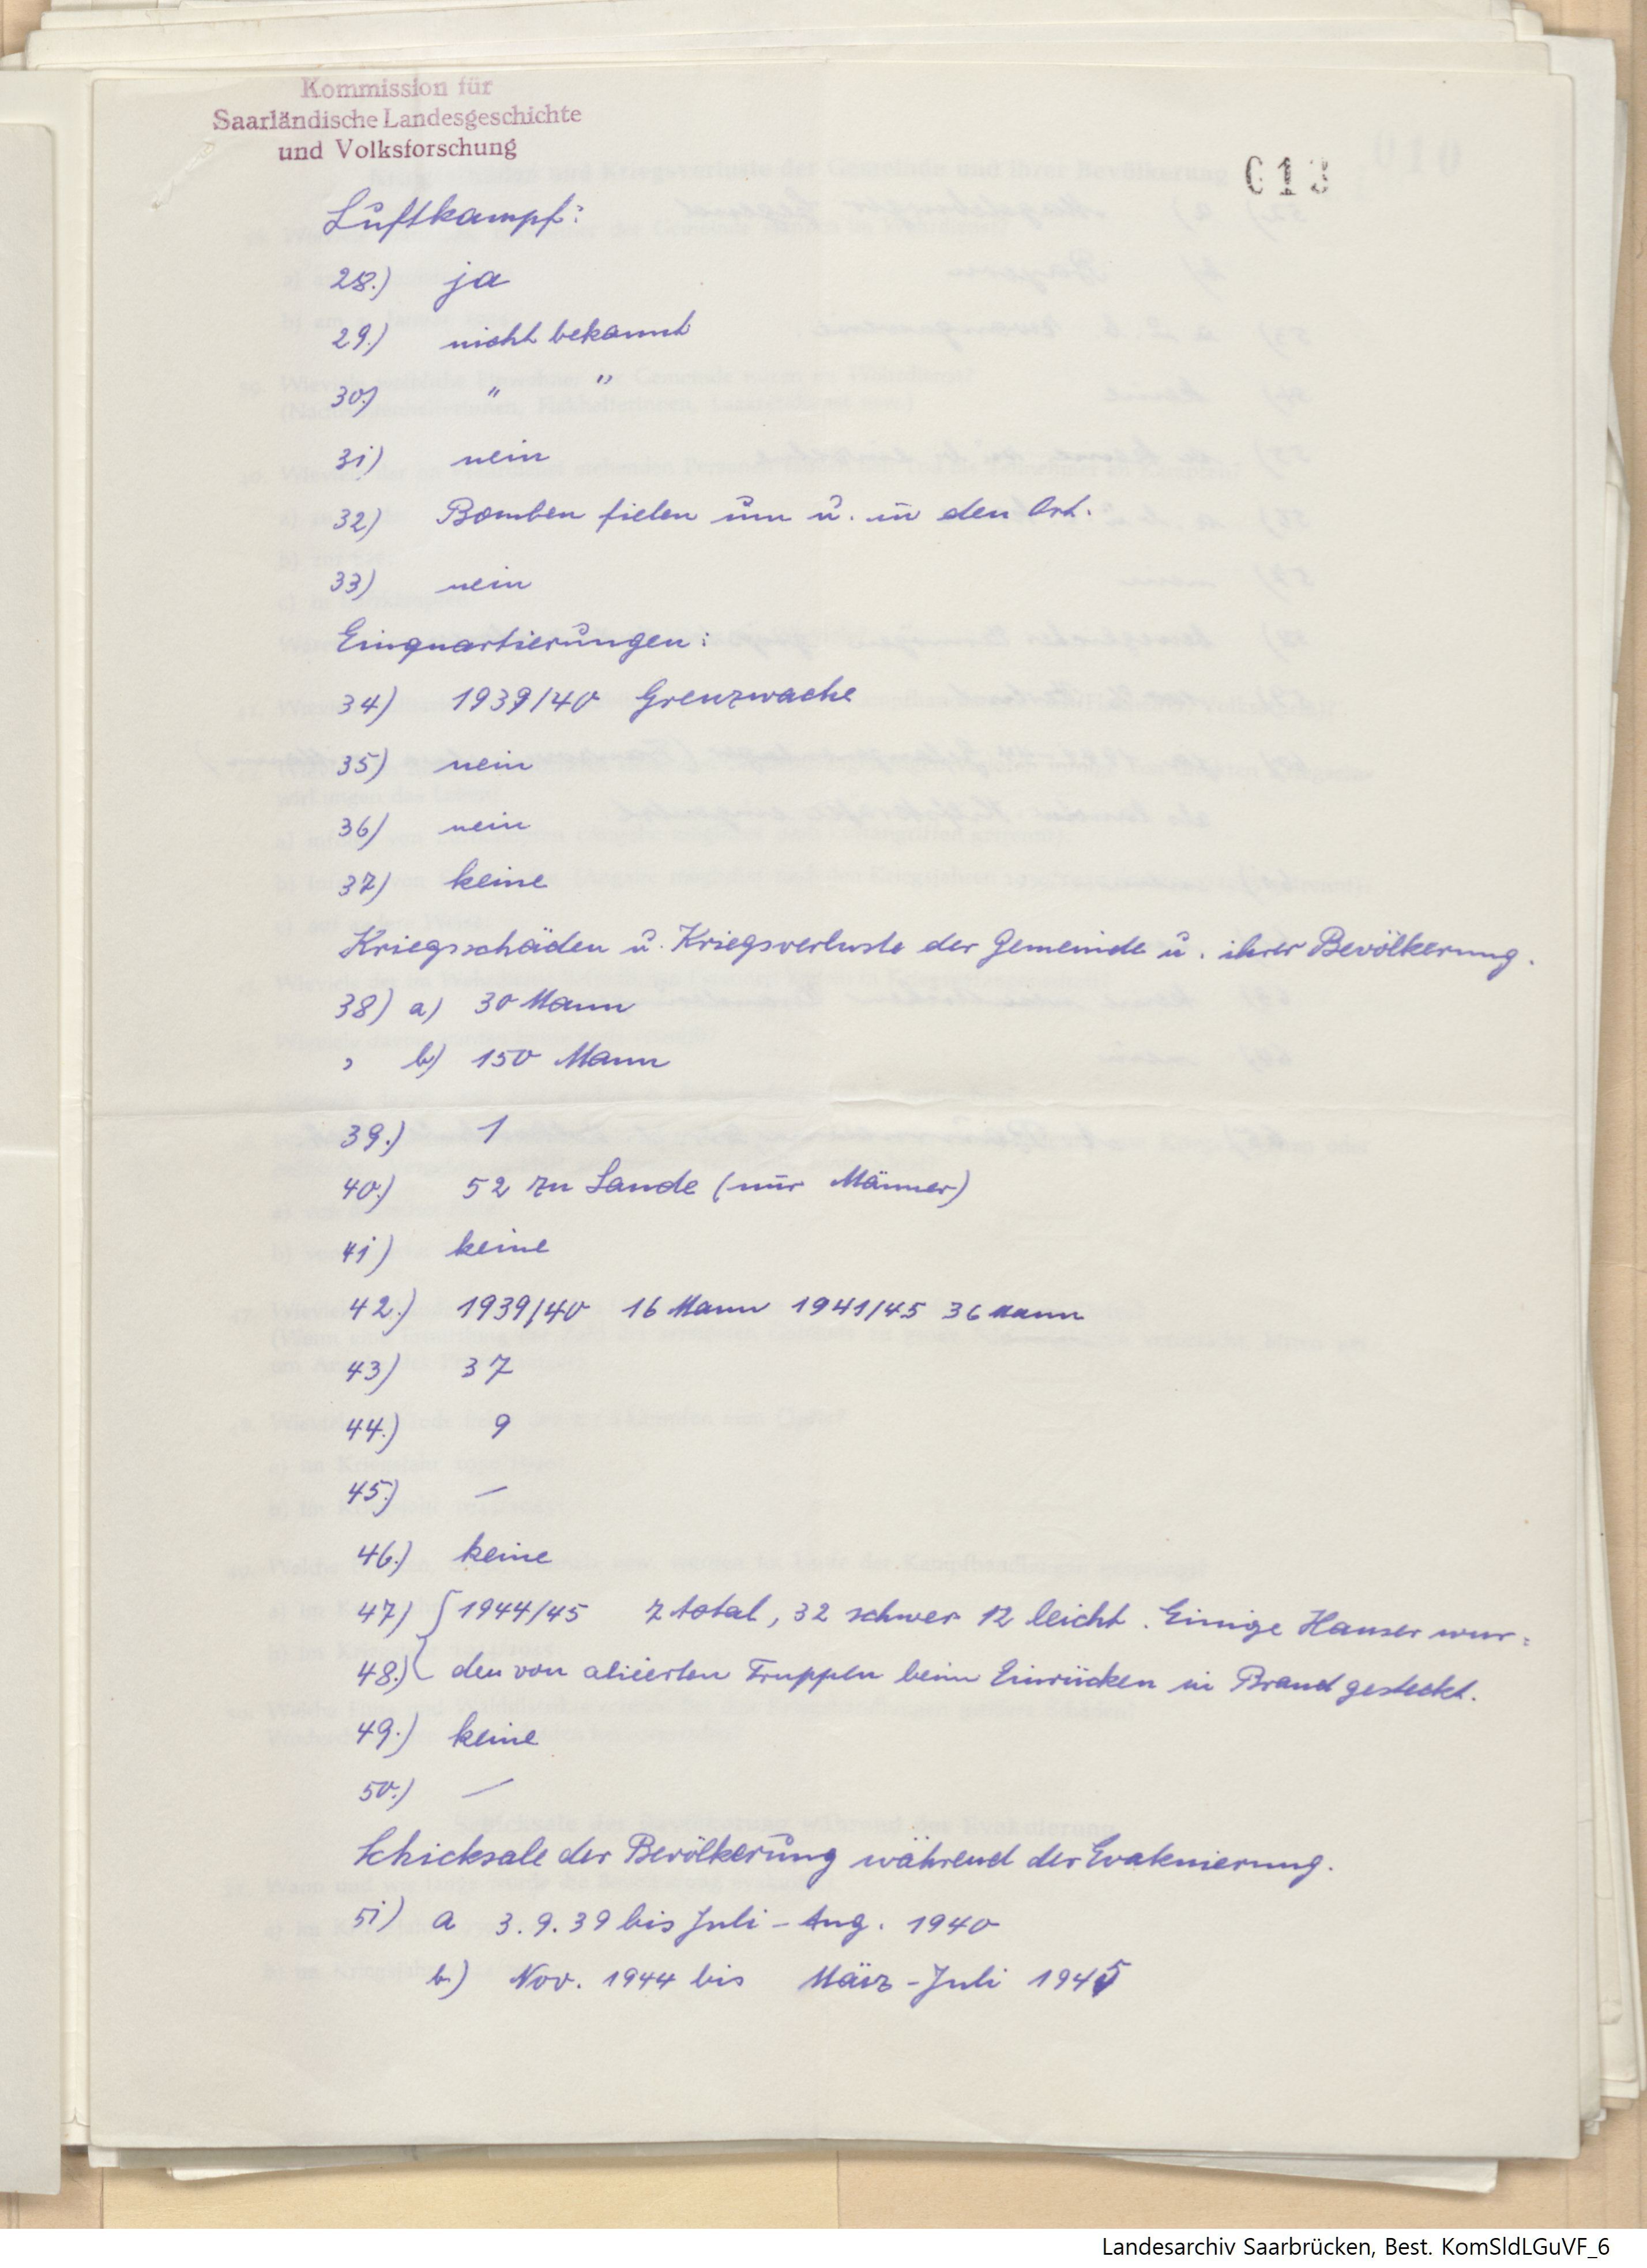 Kommission für
Saarländische Landesgeschichte
und Volksforschung
013
010
Luftkampf:
28.) ja
29.) nicht bekannt
30.) " "
31) nein
32) Bomben fielen um u. in den Ort.
33) nein
Einquartierungen:
34) 1939/40 Grenzwache
35) nein
36) nein
37) keine
Kriegsschäden u. Kriegsverluste der Gemeinde u. ihrer Bevölkerung.
38) a) 30 Mann
" b) 150 Mann
39.) 1
40.) 52 zu Lande (nur Männer)
41) keine
42.) 1939/40 16 Mann 1941/45 36 Mann
43) 37
44.) 9
45.) —
46.) keine
47) 1944/45 7 total, 32 schwer 12 leicht. Einige Hauser wur=
48.) den von aliierten Truppen beim Einrücken in Brand gesteckt.
49.) keine
50.) —
Schicksale der Bevölkerung während der Evakuierung.
51) a 3.9.39 bis Juli - Aug. 1940
b.) Nov. 1944 bis März - Juli 1945
Landesarchiv Saarbrücken, Best. KomSldLGuVF_6